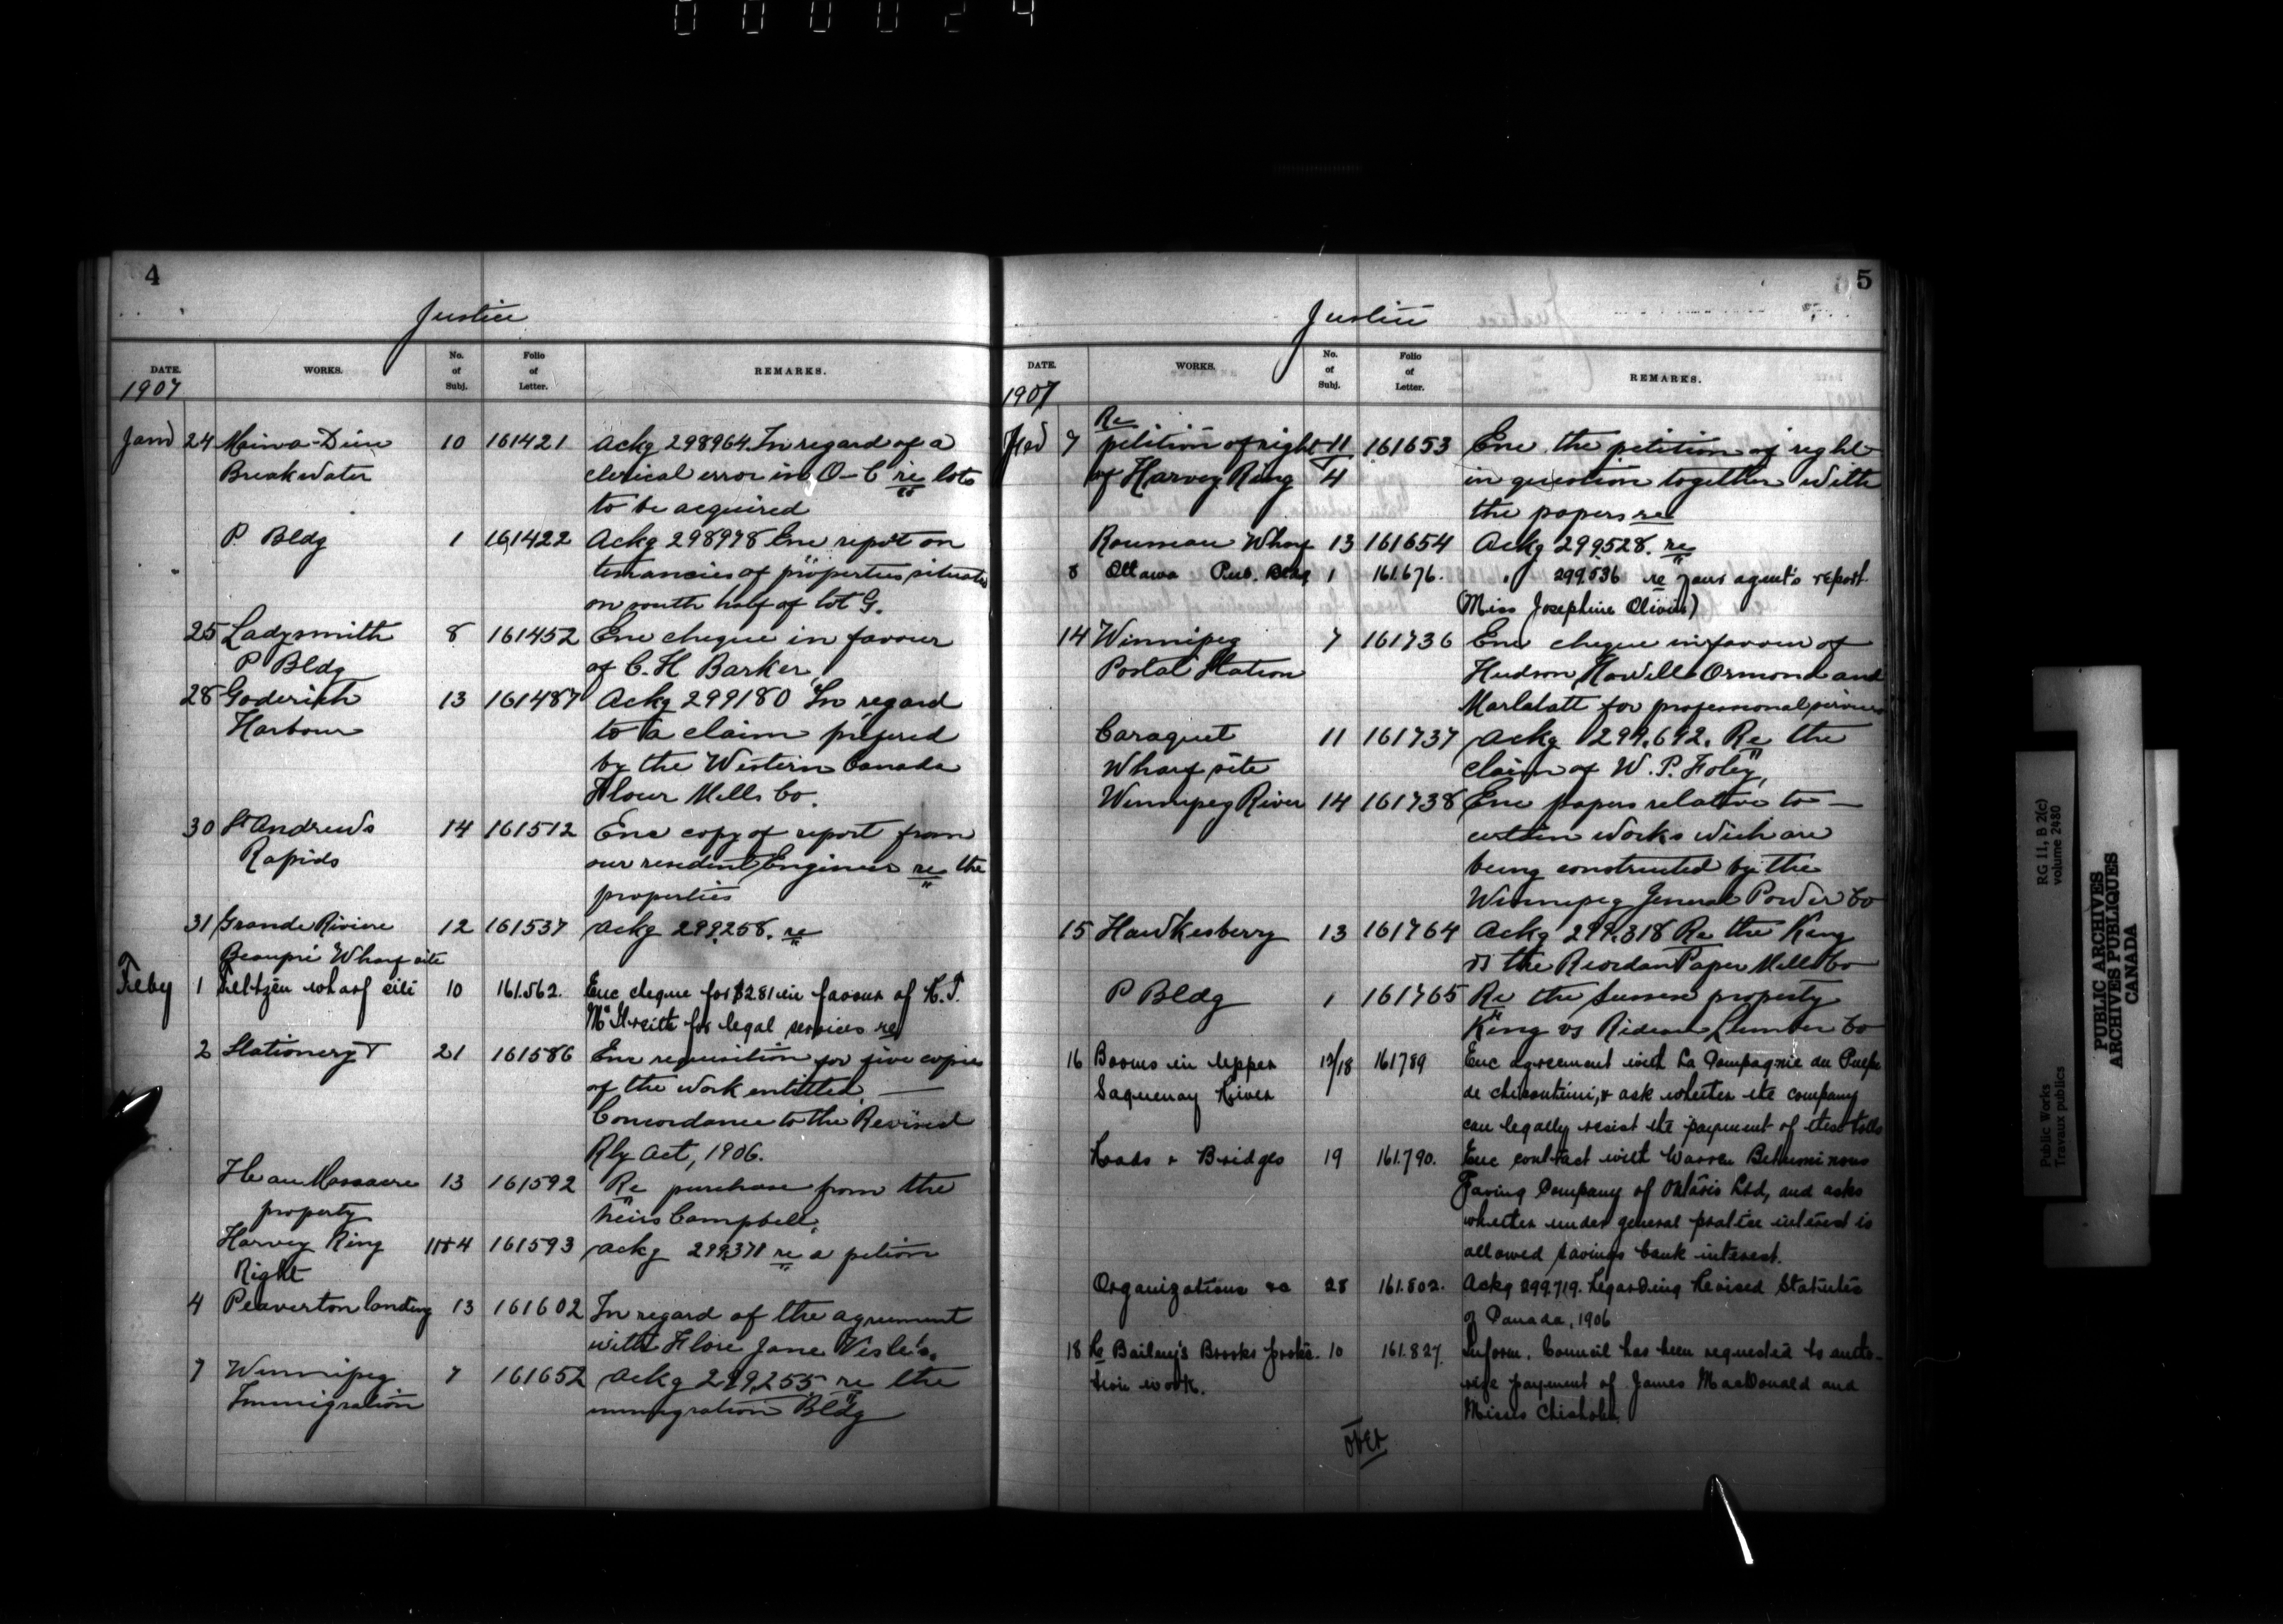 000024
4
Justice
DATE. WORKS. No. of Subj. Folio of Letter. REMARKS.
1907
Jan 24 Main-a-Dieu 10 161421 Ackg 298964. In regard of a
Breakwater clerical error in O-C re lots
to be acquired
P. Bldg 1 161422 Ackg 298978 Enc report on
tenancies of properties situate
on south half of lot G.
25 Ladysmith 8 161452 Enc cheque in favour
P Bldg of C. H Barker
28 Goderich 13 161487 Ackg 299180 In regard
Harbour to a claim prefered
by the Western Canada
Flour Mills Co.
30 St Andrews 14 161512 Enc copy of report from
Rapids our resident Engineer re the
properties
31 Grande Riviere 12 161537 Ackg 299258. re
Beaupré Wharf site
Feby 1 Feltzen wharf site 10 161.562. Enc cheque for $281 in favour of
for legal services re
2 Stationery 21 161586 Enc requisition for five copies
of the work entitled —
Concordance to the Revised
Rly Act, 1906.
Ile au Massacre 13 161592 Re purchase from the
property heirs Campbell.
Harvey Ring 11+4 161593 Ackg 299371 re a petion
Right
4 Peaverton landing 13 161602 In regard of the agreement
with Jane
7 Winnipeg 7 161652 Ackg 299,255 re the
Immigration immigration Bldg
5
Justice
DATE. WORKS. No. of Subj. Folio of Letter. REMARKS.
1907
Re
7 petition of right 11 161653 Enc the petition of right
of Harvey Ring 4 in question together with
the papers re
Wharf 13 161654 Ackg 299528. re
8 Ottawa Pub. Bldg 1 161.676. " 299.536 re your agent's report
(Miss Josephine
14 Winnipeg 7 161736 Enc cheque in favour of
Postal Station Hudson Howell Ormond and
Marlatt for professional services
Caraquet 11 161737 Ackg 299.692. Re the
Wharf site claim of W. P. Foley,
Winnipeg River 14 161738 Enc papers relative to —
certain works wich are
being constructed by the
Winnipeg General Power Co
15 Hawkesberry 13 161764 Ackg 299.318 Re the King
vs the Riordan Paper Mills Co
P Bldg 1 161765 Re the Sussex property
King vs Rideau Lumber Co
16 Booms in Upper 12/18 161789 Enc agreement with La Compagnie du Pulpe
Saguenay River de chicoutimi, & ask whether the company
can legally resist the payment of these tolls
Roads & Bridges 19 161.790. Enc contract with Warren Bituminous
Paving Company of Ontario Ltd, and asks
whether under general practice interest is
allowed savings bank interest.
Organizations &c 28 161.802. Ackg 299.719. Regarding Revised Statutes
of Canada, 1906
18 Re Bailey's Brooks protec- 10 161.827. Inform. Council has been requested to autho-
tion work. rize payment of James MacDonald and
Misses Chisholm.
over
Public Works
Travaux publics
RG 11, B 2(c)
volume 2480
PUBLIC ARCHIVES
ARCHIVES PUBLIQUES
CANADA